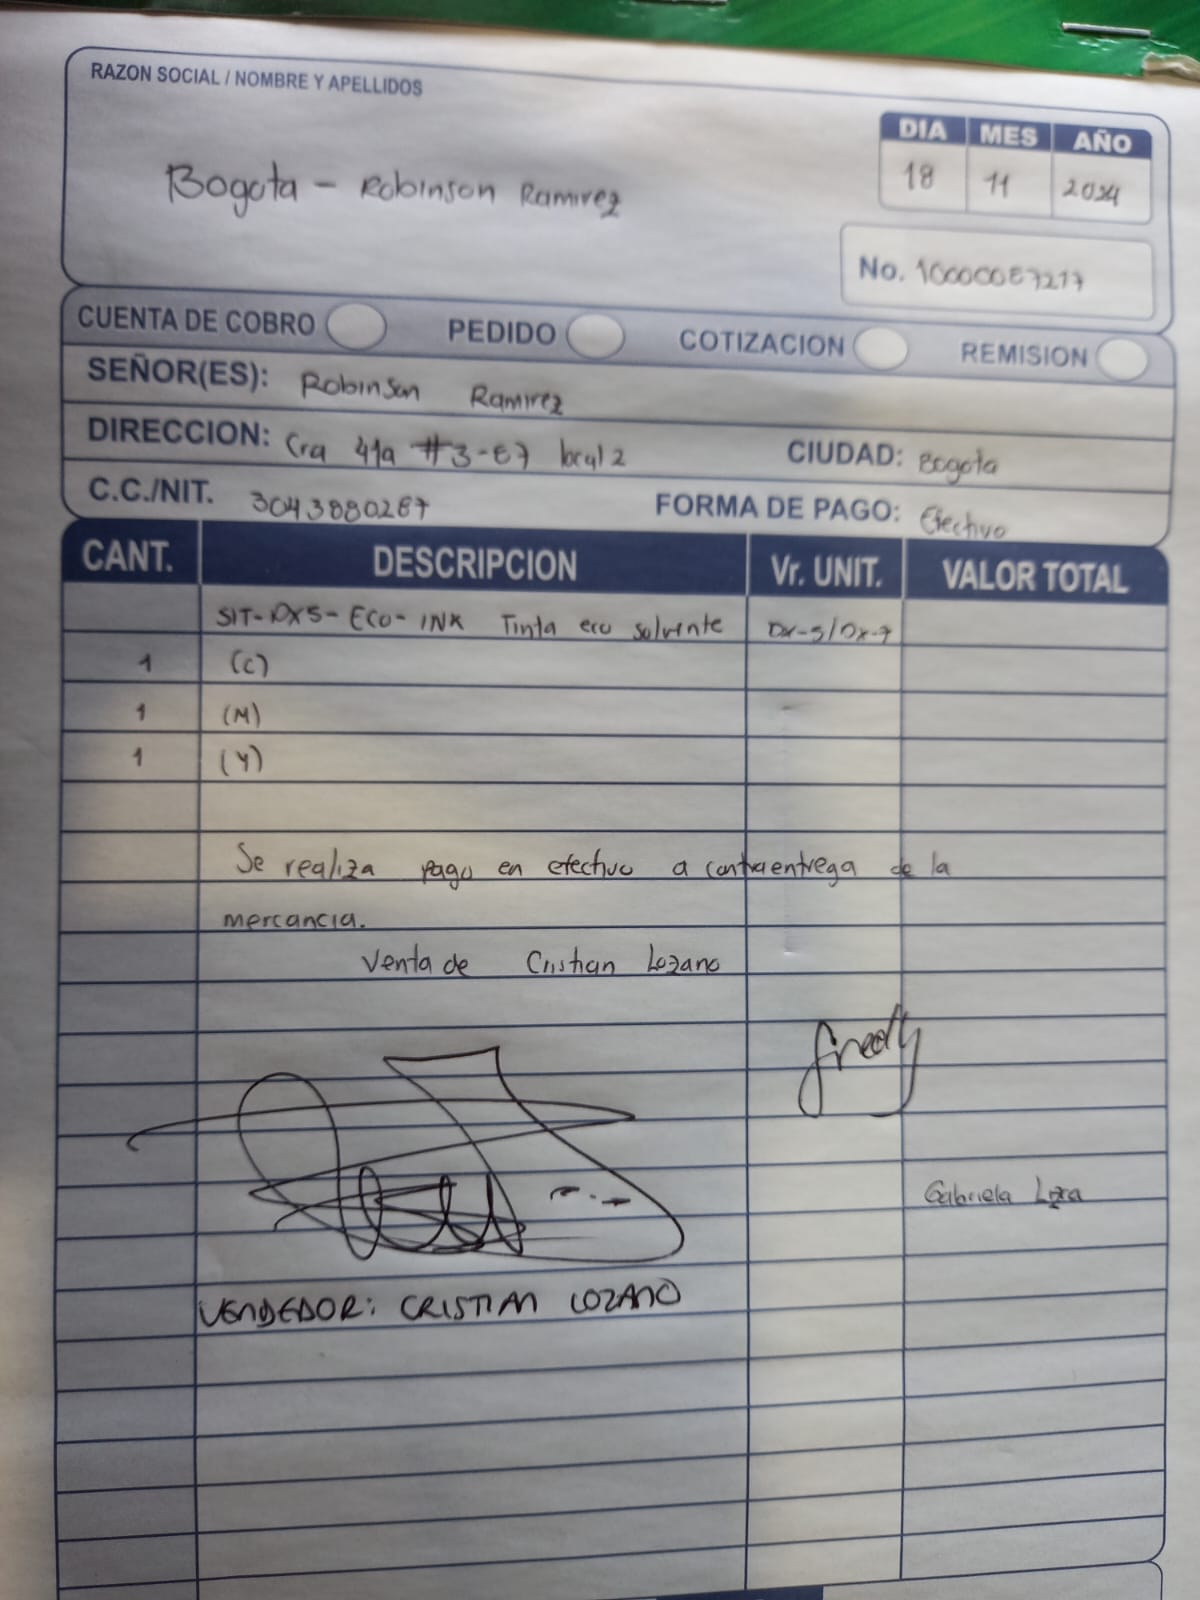 RAZON SOCIAL / NOMBRE Y APELLIDOS
DIA MES AÑO
18 11 2024
Bogota - Robinson Ramirez
No. 10000087217
CUENTA DE COBRO PEDIDO COTIZACION REMISION
SEÑOR(ES): Robinson Ramirez
DIRECCION: Cra 41a #3-87 local 2 CIUDAD: Bogota
C.C./NIT. 3043880287 FORMA DE PAGO: Efectivo
CANT. DESCRIPCION Vr. UNIT. VALOR TOTAL
SIT-DX5-ECO-INK Tinta eco solvente DX-5/DX-7
1 (C)
1 (M)
1 (Y)
Se realiza pago en efectivo a contraentrega de la
mercancia.
Venta de Cristian Lozano
fredy
Gabriela
VENDEDOR: CRISTIAN LOZANO